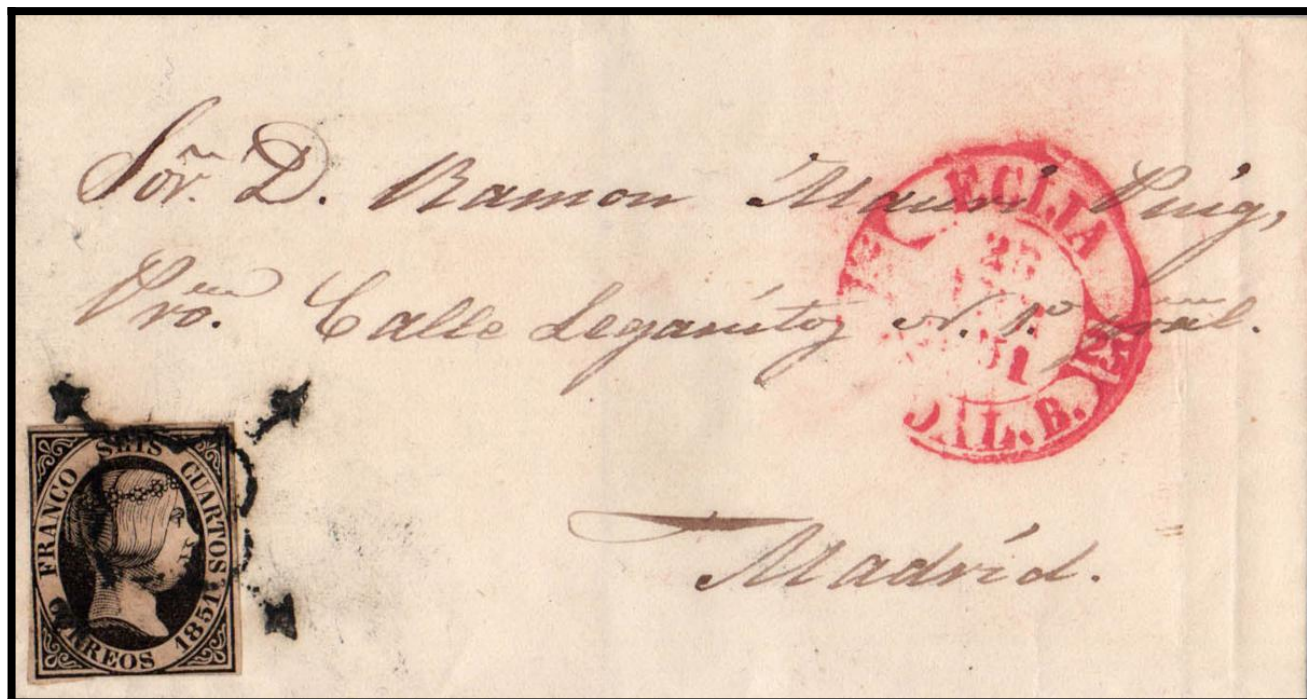 Sor. D. Ramon Mauri Puig,
Pro. Calle Leganitos N. 1º pral.
Madrid.
ECIJA
25
51
AL. B.
25
FRANCO SEIS CUARTOS
CORREOS 1851